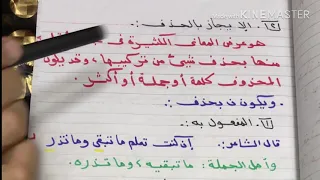 Made With KINEMASTER
[٢] الإيجاز بالحذف :-
هو عرض المعاني الكثيرة في
منها بحذف شيئ من تركيبها ، وقد يكون
المحذوف كلمة أو جملة أو أكثر .
- ويكون في بحذف :-
[١] المفعول به :-
قال الشاعر : إن كنت تعلم ما تبقي وما تذر
وأصل الجملة : ما تبقيه ، وما تذره .